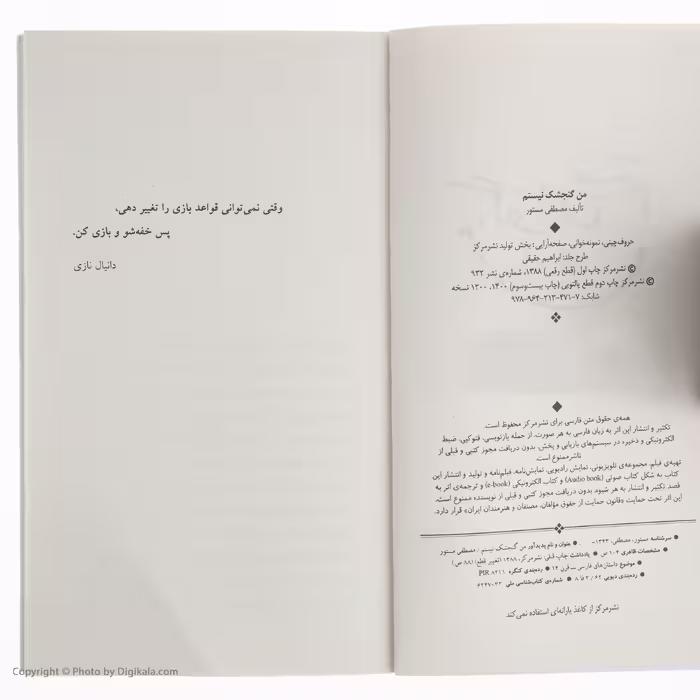 من گنجشک نیستم
تألیف مصطفی مستور
حروف‌چینی، نمونه‌خوانی، صفحه‌آرایی: بخش تولید نشرمرکز
طرح جلد: ابراهیم حقیقی
© نشرمرکز چاپ اول (قطع رقعی) ۱۳۸۸، شماره‌ی نشر ۹۳۲
© نشرمرکز چاپ دوم قطع پالتویی (چاپ بیست‌وسوم) ۱۴۰۰، ۱۲۰۰ نسخه
شابک: ۷-۴۷۱-۲۱۳-۹۶۴-۹۷۸
همه‌ی حقوق متن فارسی برای نشرمرکز محفوظ است.
تکثیر و انتشار این اثر به زبان فارسی به هر صورت، از جمله بازنویسی، فتوکپی، ضبط
الکترونیکی و ذخیره در سیستم‌های بازیابی و پخش، بدون دریافت مجوز کتبی و قبلی از
ناشر ممنوع است.
تهیه‌ی فیلم، مجموعه‌ی تلویزیونی، نمایش رادیویی، نمایش‌نامه، فیلم‌نامه و تولید و انتشار این
کتاب به شکل کتاب صوتی (Audio book) و کتاب الکترونیکی (e-book) و ترجمه‌ی اثر به
قصد تکثیر و انتشار به هر شیوه، بدون دریافت مجوز کتبی و قبلی از نویسنده ممنوع است.
این اثر تحت حمایت «قانون حمایت از حقوق مؤلفان، مصنفان و هنرمندان ایران» قرار دارد.
● سرشناسه مستور، مصطفی، ۱۳۴۳- ● عنوان و نام پدیدآور من گنجشک نیستم / مصطفی مستور
● مشخصات ظاهری ۱۰۴ ص ● یادداشت چاپ قبلی نشرمرکز، ۱۳۸۸ (تغییر قطع) (۸۸ ص)
● موضوع داستان‌های فارسی — قرن ۱۴ ● رده‌بندی کنگره PIR ۸۲۱۱
● رده‌بندی دیویی ۸ فا ۳ / ۶۲ ● شماره‌ی کتاب‌شناسی ملی
نشرمرکز از کاغذ یارانه‌ای استفاده نمی‌کند
وقتی نمی‌توانی قواعد بازی را تغییر دهی،
پس خفه‌شو و بازی کن.
دانیال نازی
Copyright © Photo by Digikala.com